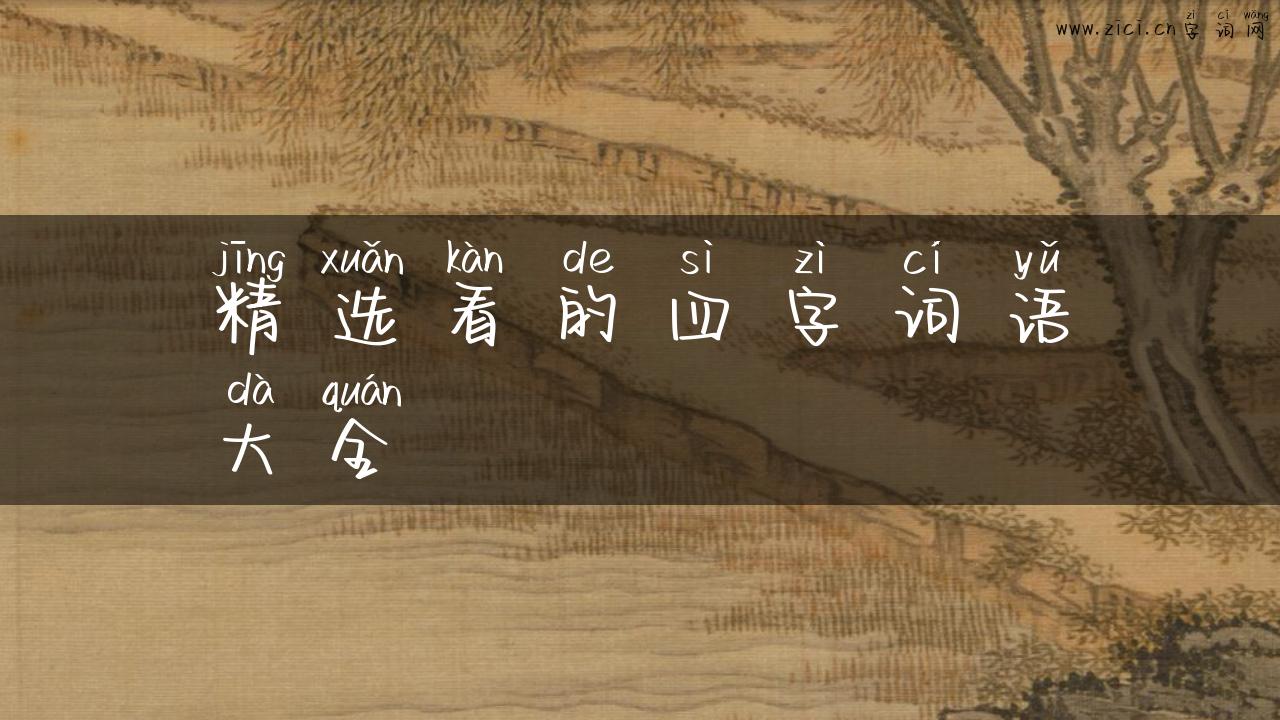 zì cí wǎng
www.zici.cn 字 词 网
jīng xuǎn kàn de sì zì cí yǔ
精 选 看 的 四 字 词 语
dà quán
大 全